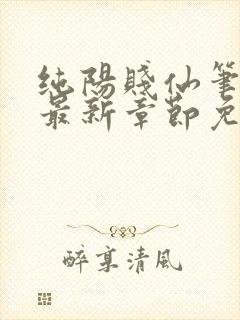 純陽賤仙筆
最新章節免
醉享清風